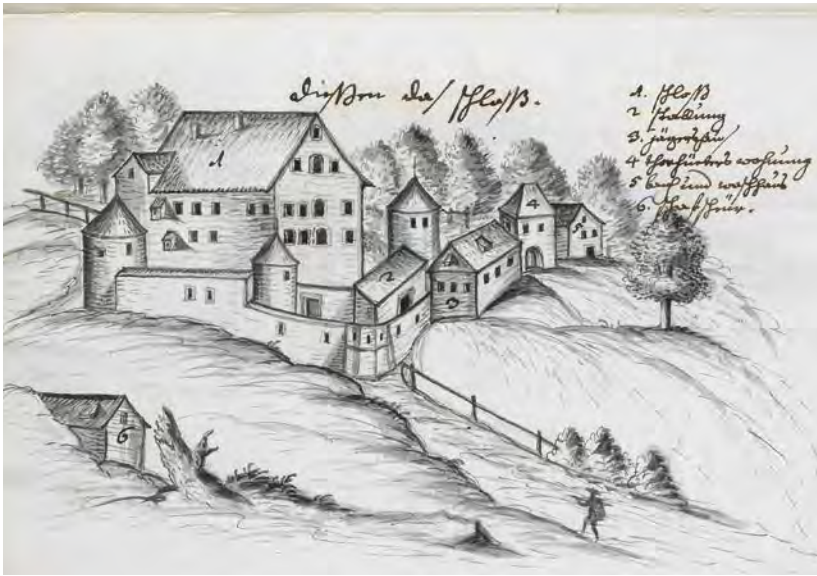 Dießen das schloß.
1. schloß
2 stallung
3. jägerhauß
4 thorhüters wohnung
5 bach und waschhaus
6. schaf scheür.
1
4
5
2
3
6